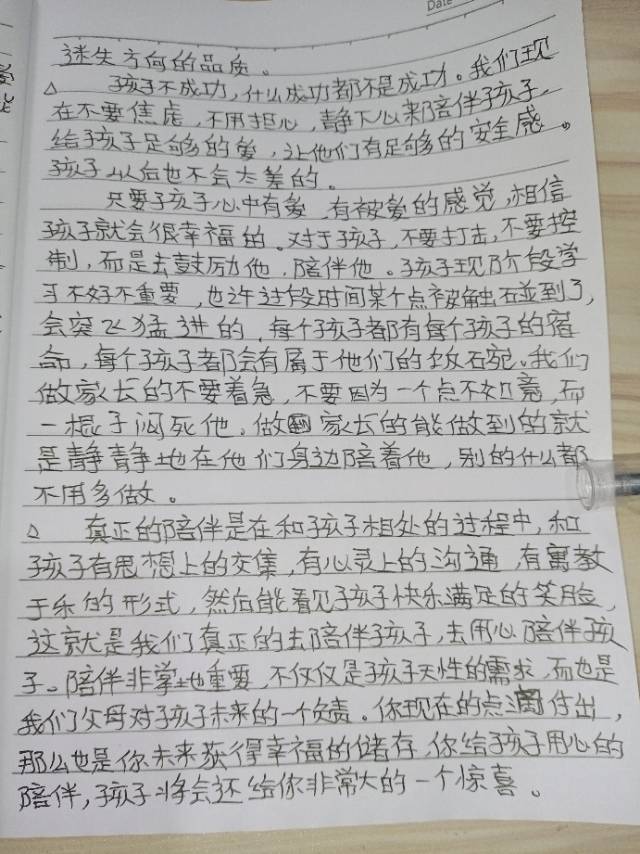 Date
迷失方向的品质。
△ 孩子不成功,什么成功都不是成功。我们现
在不要焦虑,不用担心,静下心来陪伴孩子,
给孩子足够的爱,让他们有足够的安全感。
孩子以后也不会太差的。
只要孩子心中有爱,有被爱的感觉,相信
孩子就会很幸福的。对于孩子,不要打击,不要控
制,而是去鼓励他,陪伴他。孩子现阶段学
习不好不重要,也许过段时间某个点被触碰到了,
会突飞猛进的,每个孩子都有每个孩子的宿
命,每个孩子都会有属于他们的故碗。我们
做家长的不要着急,不要因为一个点不如意,而
一棍子闷死他。做家长的能做到的就
是静静地在他们身边陪着他,别的什么都
不用多做。
△ 真正的陪伴是在和孩子相处的过程中,和
孩子有思想上的交集,有心灵上的沟通,有寓教
于乐的形式,然后能看见孩子快乐满足的笑脸,
这就是我们真正的去陪伴孩子,去用心陪伴孩
子。陪伴非常地重要,不仅仅是孩子天性的需求,而也是
我们父母对孩子未来的一个负责。你现在的点滴付出,
那么也是你未来获得幸福的储存,你给孩子用心的
陪伴,孩子将会还给你非常大的一个惊喜。